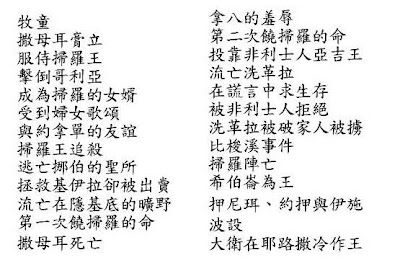 牧童
撒母耳膏立
服侍掃羅王
擊倒哥利亞
成為掃羅的女婿
受到婦女歌頌
與約拿單的友誼
掃羅王追殺
逃亡挪伯的聖所
拯救基伊拉卻被出賣
流亡在隱基底的曠野
第一次饒掃羅的命
撒母耳死亡
拿八的羞辱
第二次饒掃羅的命
投靠非利士人亞吉王
流亡洗革拉
在謊言中求生存
被非利士人拒絕
洗革拉被破家人被擄
比梭溪事件
掃羅陣亡
希伯崙為王
押尼珥、約押與伊施
波設
大衛在耶路撒冷作王